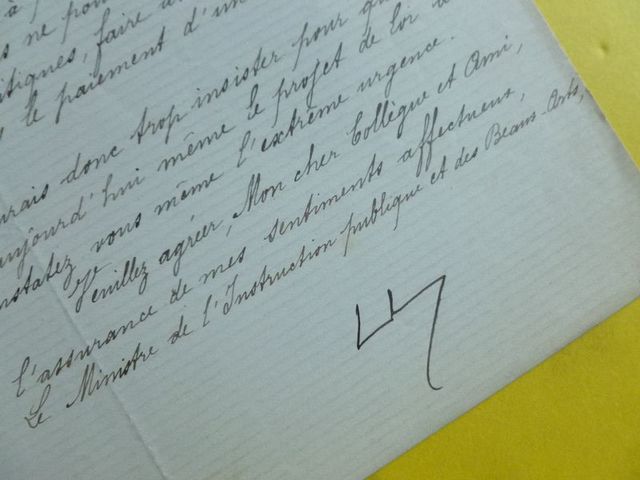 à
s ne pou
itiques, faire a
le paiement d'un
urais donc trop insister pour qu
aujourd'hui même le projet de loi
nstatez vous même l'extrême urgence.
Veuillez agréer, Mon cher Collègue et Ami,
l'assurance de mes sentiments affectueux,
Le Ministre de l'Instruction publique et des Beaux-Arts,